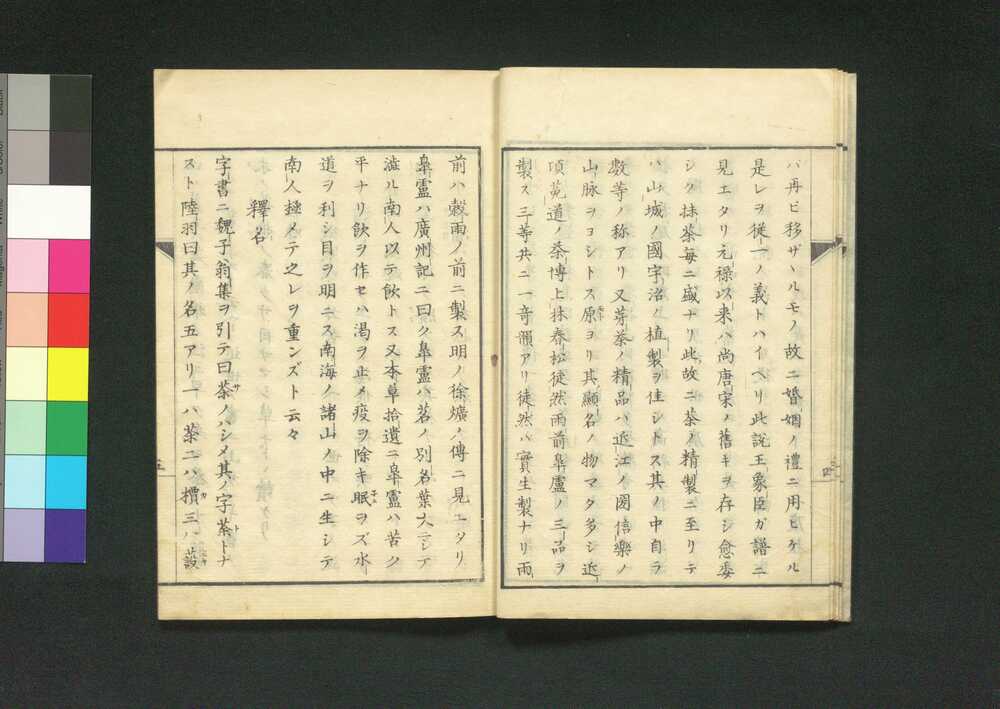 ハ再ビ移ザヽルモノ故ニ婚姻ノ禮ニ用ヒケル
是レヲ従一ノ義トハイヘリ此説王象臣ガ譜ニ
見エタリ元禄以来ハ尚唐宋ノ舊キヲ存シ愈委
シク抹茶毎ニ盛ナリ此故ニ茶ノ精製ニ至リテ
ハ山城ノ國宇治ノ植製ヲ佳シトス其ノ中自ラ
数等ノ称アリ又芽茶ノ精品ハ近江ノ國信樂ノ
山脉ヲヨシトス原ヨリ其顯名ノ物マタ多シ近
項菟道ノ茶博上林春松徒然雨前皐盧ノ三品ヲ
製ス三等共ニ一奇韻アリ徒然ハ實生製ナリ雨
前ハ穀雨ノ前ニ製ス明ノ徐爌ノ傳ニ見エタリ
皐盧ハ廣州記ニ曰ク皐盧ハ茗ノ別名葉大ニシテ
澁ル南人以テ飲トス又本草拾遺ニ皐盧ハ苦ク
平ナリ飲ヲ作セハ渇ヲ止メ疫ヲ除キ眠ヲズ水
道ヲ利シ目ヲ明ニス南海ノ諸山ノ中ニ生シテ
南人極メテ之レヲ重ンズト云々
釋名
字書ニ魏子翁集ヲ引テ曰茶ノハシメ其ノ字荼トナ
スト陸羽曰其ノ名五アリ一ハ茶二ハ檟三ハ蔎